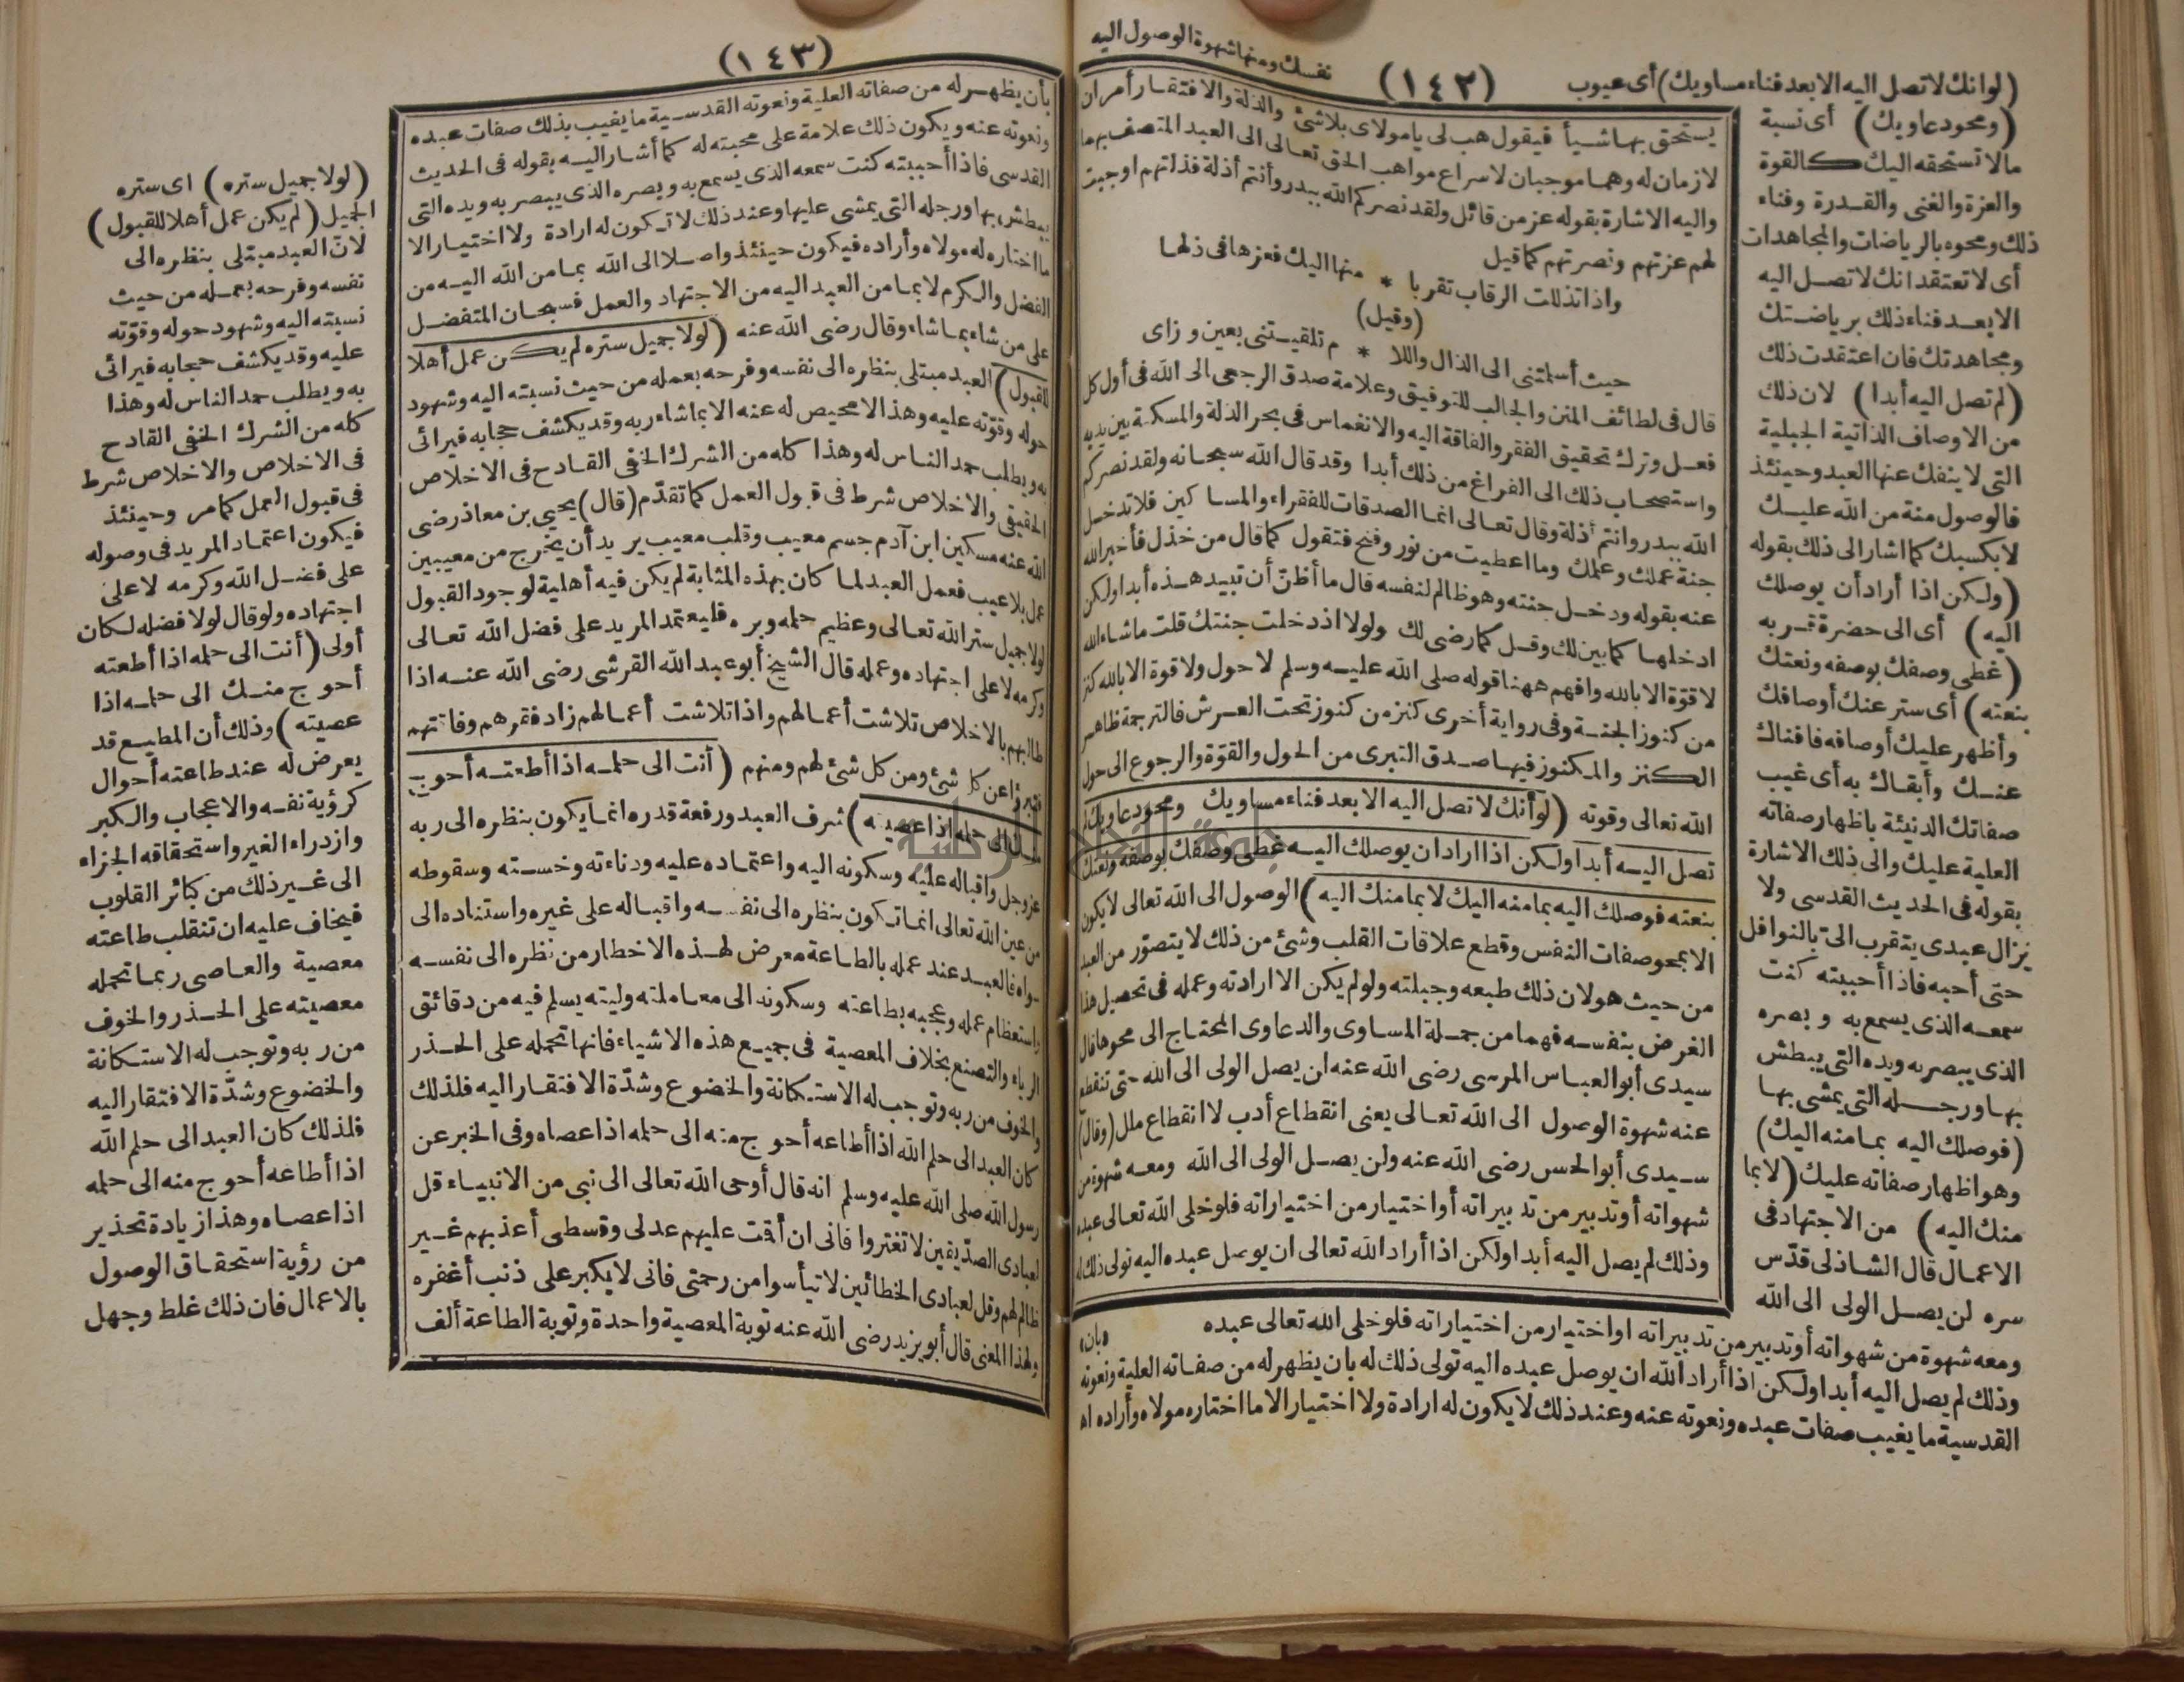 (١٤٢)
(لوانك لاتصل اليه الابعد فناء مساويك) أى عيوب
نفسك ومنها شهوة الوصول اليه
(ومحودعاويك) أى نسبة
مالا تستحقه اليك كالقوة
والعزة والغنى والقدرة وفناء
ذلك ومحوه بالرياضات والمجاهدات
أى لا تعتقد انك لا تصل اليه
الابعد فناء ذلك برياضتك
ومجاهدتك فان اعتقدت ذلك
(لم تصل اليه أبدا) لان ذلك
من الاوصاف الذاتية الجبلية
التى لا ينفك عنها العبد وحينئذ
فالوصول منة من الله عليك
لا بكسبك كما اشار الى ذلك بقوله
(ولكن اذا أراد أن يوصلك
اليه) أى الى حضرة قربه
(غطى وصفك بوصفه ونعتك
بنعته) أى ستر عنك أوصافك
وأظهر عليك أوصافه فافناك
عنك وأبقاك به أى غيب
صفاتك الدنيئة باظهار صفاته
العلية عليك والى ذلك الاشارة
بقوله فى الحديث القدسى ولا
يزال عبدى يتقرب الىّ بالنوافل
حتى أحبه فاذا أحببته كنت
سمعه الذى يسمع به وبصره
الذى يبصر به ويده التى يبطش
بها ورجله التى يمشى بها
(فوصلك اليه بما منه اليك)
وهو اظهار صفاته عليك (لا بما
منك اليه) من الاجتهاد فى
الاعمال قال الشاذلى قدّس
سره لن يصل الولى الى الله
ومعه شهوة من شهواته أو تدبير من تدبيراته او اختيار من اختياراته فلو خلى الله تعالى عبده
وذلك لم يصل اليه أبدا ولكن اذا أراد الله ان يوصل عبده اليه تولى ذلك له بان يظهر له من صفاته العلية ونعوته
القدسية ما يغيب صفات عبده ونعوته عنه وعند ذلك لا يكون له ارادة ولا اختيار الا ما اختاره مولاه وأراده اه
يستحق بها شيأ فيقول هب لى يا مولاى بلاشئ والذلة والافتقار أمران
لازمان له وهما موجبان لاسراع مواهب الحق تعالى الى العبد المتصف بهما
واليه الاشارة بقوله عز من قائل ولقد نصركم الله ببدر وأنتم أذلة فذلتهم اوجبت
لهم عزتهم ونصرتهم كما قيل
واذا تذللت الرقاب تقربا * منها اليك فعزها فى ذلها
(وقيل)
حيث أسلمتنى الى الذال واللا * م تلقيتنى بعين وزاى
قال فى لطائف المنن والجالب للتوفيق وعلامة صدق الرجعى الى الله فى أول كل
فعل وترك تحقيق الفقر والفاقة اليه والانغماس فى بحر الذلة والمسكنة بين يديه
واستصحاب ذلك الى الفراغ من ذلك أبدا وقد قال الله سبحانه ولقد نصركم
الله ببدر وانتم أذلة وقال تعالى انما الصدقات للفقراء والمساكين فلا تدخل
جنة عملك وعلمك وما اعطيت من نور وفتح فتقول كما قال من خذل فأخبر الله
عنه بقوله ودخل جنته وهو ظالم لنفسه قال ما أظنّ أن تبيد هذه أبدا ولكن
ادخلها كما بين لك وقل كما رضى لك ولولا اذ دخلت جنتك قلت ماشاء الله
لا قوّة الا بالله وافهم ههنا قوله صلى الله عليه وسلم لا حول ولا قوة الا بالله كنز
من كنوز الجنة وفى رواية أخرى كنز من كنوز تحت العرش فالترجمة ظاهر
الكنز والمكنوز فيها صدق التبرى من الحول والقوّة والرجوع الى حول
الله تعالى وقوته (لو أنك لا تصل اليه الا بعد فناء مساويك ومحودعاويك لم
تصل اليه أبدا ولكن اذا اراد ان يوصلك اليه غطى وصفك بوصفه ونعتك
بنعته فوصلك اليه بما منه اليك لا بما منك اليه) الوصول الى الله تعالى لا يكون
الا بمحو صفات النفس وقطع علاقات القلب وشئ من ذلك لا يتصوّر من العبد
من حيث هو لان ذلك طبعه وجبلته ولو لم يكن الا ارادته وعمله فى تحصيل هذا
الغرض بنفسه فهما من جملة المساوى والدعاوى المحتاج الى محوها قال
سيدى أبو العباس المرسى رضى الله عنه ان يصل الولى الى الله حتى تنقطع
عنه شهوة الوصول الى الله تعالى يعنى انقطاع أدب لا انقطاع ملل (وقال)
سيدى أبو الحسن رضى الله عنه ولن يصل الولى الى الله ومعه شهوة من
شهواته أو تدبير من تدبيراته أو اختيار من اختياراته فلو خلى الله تعالى عبده
وذلك لم يصل اليه أبدا ولكن اذا أراد الله تعالى ان يوصل عبده اليه تولى ذلك له
(بان)
(١٤٣)
بأن يظهر له من صفاته العلية ونعوته القدسية ما يغيب بذلك صفات عبده
ونعوته عنه ويكون ذلك علامة على محبته له كما أشار اليه بقوله فى الحديث
القدسى فاذا أحببته كنت سمعه الذى يسمع به وبصره الذى يبصر به ويده التى
يبطش بها ورجله التى يمشى عليها وعند ذلك لا تكون له ارادة ولا اختيار الا
ما اختاره له مولاه وأراده فيكون حينئذ واصلا الى الله بما من الله اليه من
الفضل والكرم لا بما من العبد اليه من الاجتهاد والعمل فسبحان المتفضل
على من شاء بما شاء وقال رضى الله عنه (لولا جميل ستره لم يكن عمل أهلا
للقبول) العبد مبتلى بنظره الى نفسه وفرحه بعمله من حيث نسبته اليه وشهود
حوله وقوّته عليه وهذا لا محيص له عنه الا بما شاء ربه وقد يكشف حجابه فيرائى
به ويطلب حمد الناس له وهذا كله من الشرك الخفى القادح فى الاخلاص
الحقيقى والاخلاص شرط فى قبول العمل كما تقدّم (قال) يحيى بن معاذ رضى
الله عنه مسكين ابن آدم جسم معيب وقلب معيب يريد أن يخرج من معيبين
عمل بلا عيب فعمل العبد لما كان بهذه المثابة لم يكن فيه أهلية لوجود القبول
لولا جميل ستر الله تعالى وعظيم حلمه وبره فليعتمد المريد على فضل الله تعالى
وكرمه لا على اجتهاده وعمله قال الشيخ أبو عبد الله القرشى رضى الله عنه اذا
طالبهم بالاخلاص تلاشت أعمالهم واذا تلاشت أعمالهم زاد فقرهم وفاقتهم
فتبرؤا عن كل شئ ومن كل شئ لهم ومنهم (أنت الى حلمه اذا أطعته أحوج
منك الى حلمه اذا عصيته) شرف العبد ورفعة قدره انما يكون بنظره الى ربه
عز وجل واقباله عليه وسكونه اليه واعتماده عليه ودناءته وخسته وسقوطه
من عين الله تعالى انما تكون بنظره الى نفسه واقباله على غيره واستناده الى
سواه فالعبد عند عمله بالطاعة معرض لهذه الاخطار من نظره الى نفسه
واستعظام عمله وعجبه بطاعته وسكونه الى معاملته وليته يسلم فيه من دقائق
الرياء والتصنع بخلاف المعصية فى جميع هذه الاشياء فانها تحمله على الحذر
والخوف من ربه وتوجب له الاستكانة والخضوع وشدّة الافتقار اليه فلذلك
كان العبد الى حلم الله اذا أطاعه أحوج منه الى حلمه اذا عصاه وفى الخبر عن
رسول الله صلى الله عليه وسلم انه قال أوحى الله تعالى الى نبى من الانبياء قل
لعبادى الصدّيقين لا تغتروا فانى ان أقت عليهم عدلى وقسطى أعذبهم غير
ظالم لهم وقل لعبادى الخطائين لا تيأسوا من رحمتى فانى لا يكبر على ذنب أغفره
ولهذا المعنى قال أبو يزيد رضى الله عنه توبة المعصية واحدة وتوبة الطاعة ألف
(لولا جميل ستره) اى ستره
الجميل (لم يكن عمل أهلا للقبول)
لانّ العبد مبتلى بنظره الى
نفسه وفرحه بعمله من حيث
نسبته اليه وشهود حوله وقوّته
عليه وقد يكشف حجابه فيرائى
به ويطلب حمد الناس له وهذا
كله من الشرك الخفى القادح
فى الاخلاص والاخلاص شرط
فى قبول العمل كما مر وحينئذ
فيكون اعتماد المريد فى وصوله
على فضل الله وكرمه لا على
اجتهاده ولو قال لولا فضله لكان
أولى (أنت الى حلمه اذا أطعته
أحوج منك الى حلمه اذا
عصيته) وذلك أن المطيع قد
يعرض له عند طاعته أحوال
كرؤية نفسه والاعجاب والكبر
وازدراء الغير واستحقاقه الجزاء
الى غير ذلك من كبائر القلوب
فيخاف عليه ان تنقلب طاعته
معصية والعاصى ربما تحمله
معصيته على الحذر والخوف
من ربه وتوجب له الاستكانة
والخضوع وشدّة الافتقار اليه
فلذلك كان العبد الى حلم الله
اذا أطاعه أحوج منه الى حلمه
اذا عصاه وهذا زيادة تحذير
من رؤية استحقاق الوصول
بالاعمال فان ذلك غلط وجهل